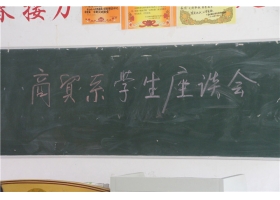 接力
商贸系学生座谈会